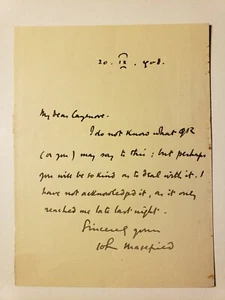 20. 12. 1908.
My dear Cazenove.
I do not know what
(or you) may say to this; but perhaps
you will be so kind as to deal with it. I
have not acknowledged it, as it only
reached me late last night.
Sincerely yours
John Masefield